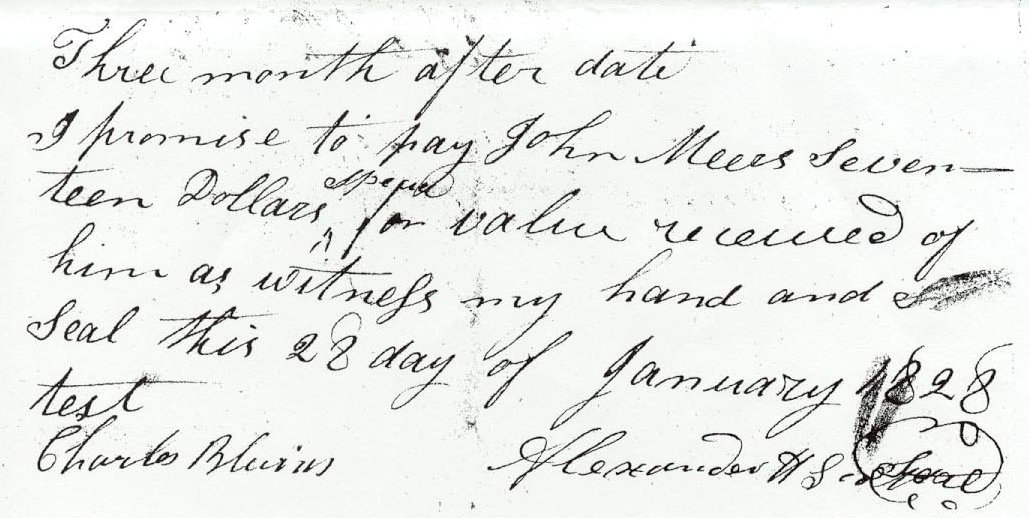 Three month after date
I promise to pay John Mees Seven-
teen Dollars specia for value received of
him as witness my hand and
Seal this 28 day of January 1828
test
Charles Blevins
Alexander H Seal